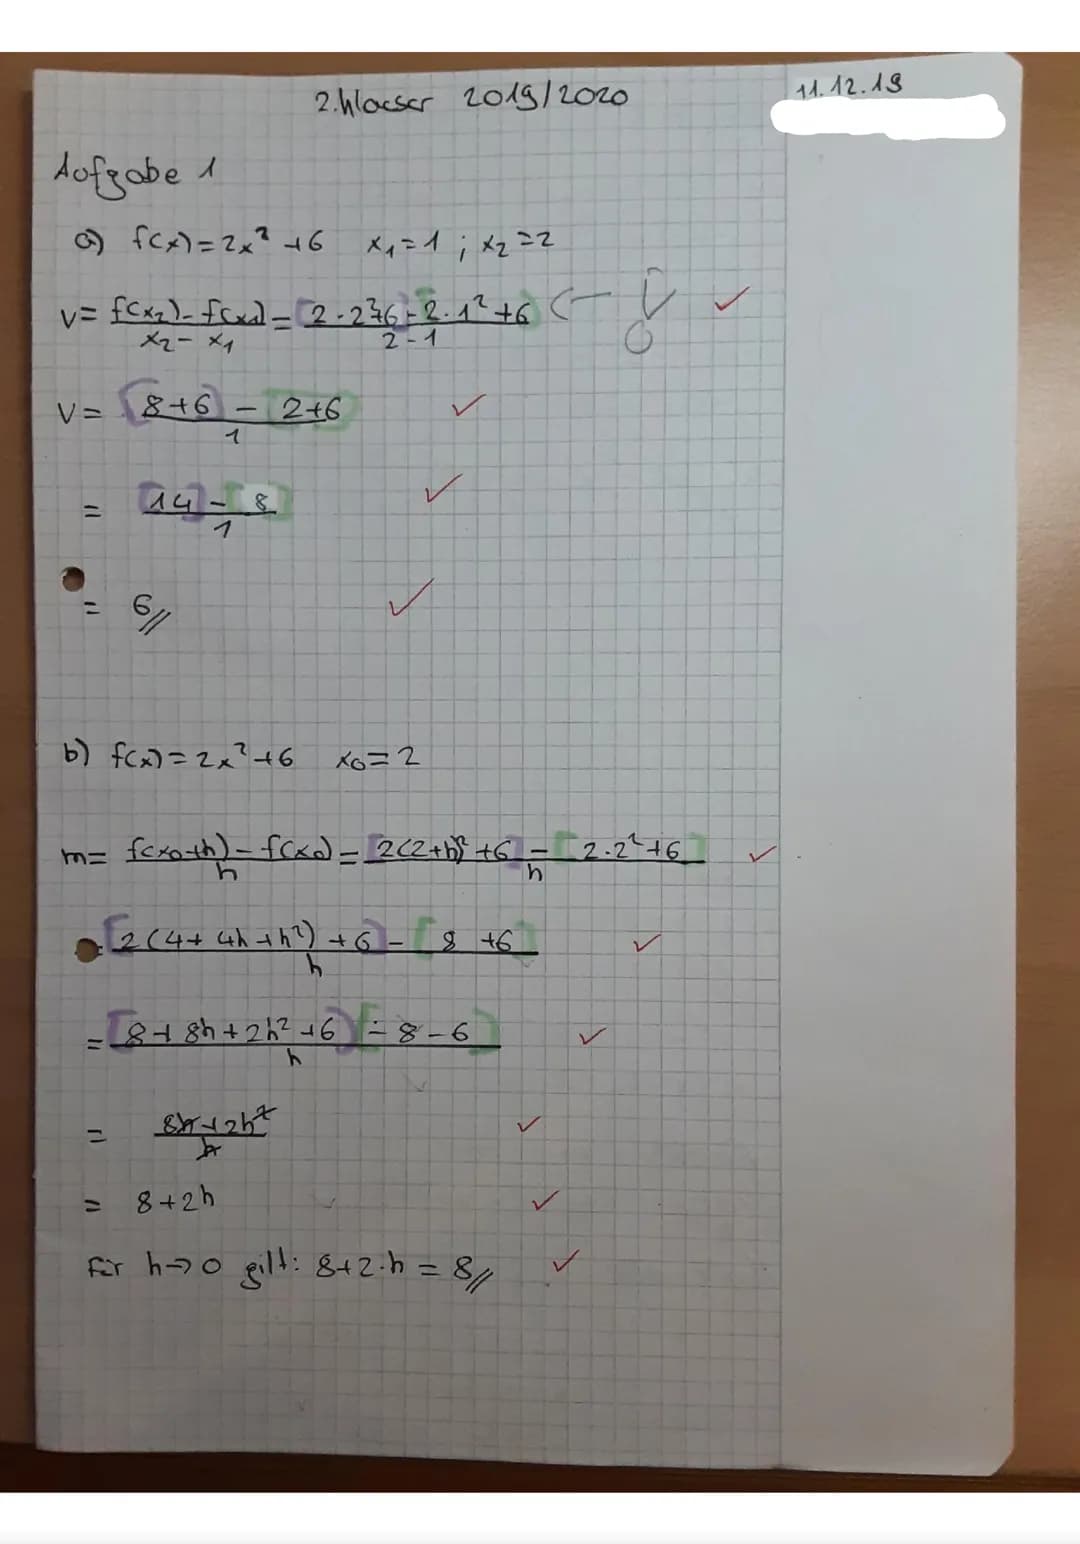 2. Klausur 2019/2020
11.12.19
Aufgabe 1
a) f(x) = 2x² + 6 x₁ = 1 ; x₂ = 2
v = (f(x₂) - f(x₁))/(x₂ - x₁) = ([2·2²+6] - [2·1²+6])/(2 - 1) <-
v = ([8+6] - [2+6])/1
= ([14] - [8])/1
= 6//
b) f(x) = 2x² + 6 x₀ = 2
m = (f(x₀+h) - f(x₀))/h = ([2(2+h)² + 6] - [2·2² + 6])/h
= ([2(4 + 4h + h²) + 6] - [8 + 6])/h
= ([8 + 8h + 2h² + 6] [- 8 - 6])/h
= (8h + 2h²)/h
= 8 + 2h
Für h → 0 gilt: 8 + 2·h = 8//